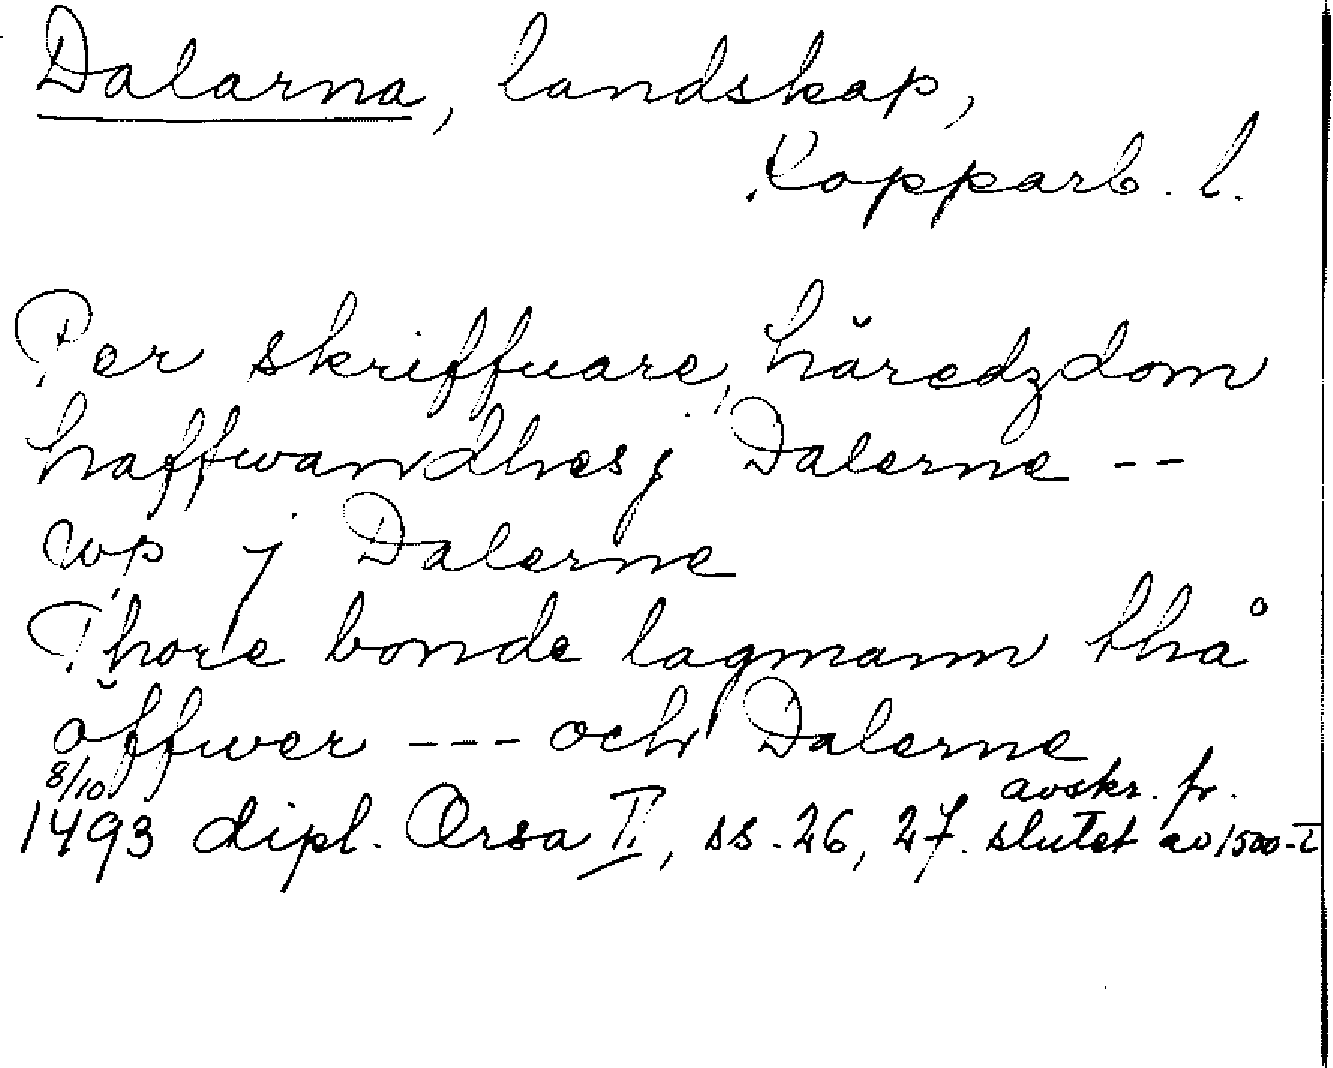 Dalarna, landskap,
Kopparb. l.
Per skriffuare, häredzdom
haffwandhes j Dalerne --
wp j Dalerne
Thore bonde lagmann thå
öffwer --- och Dalerne
8/10 avskr. fr.
1493 dipl. Orsa II, ss. 26, 27. slutet av 1500-t